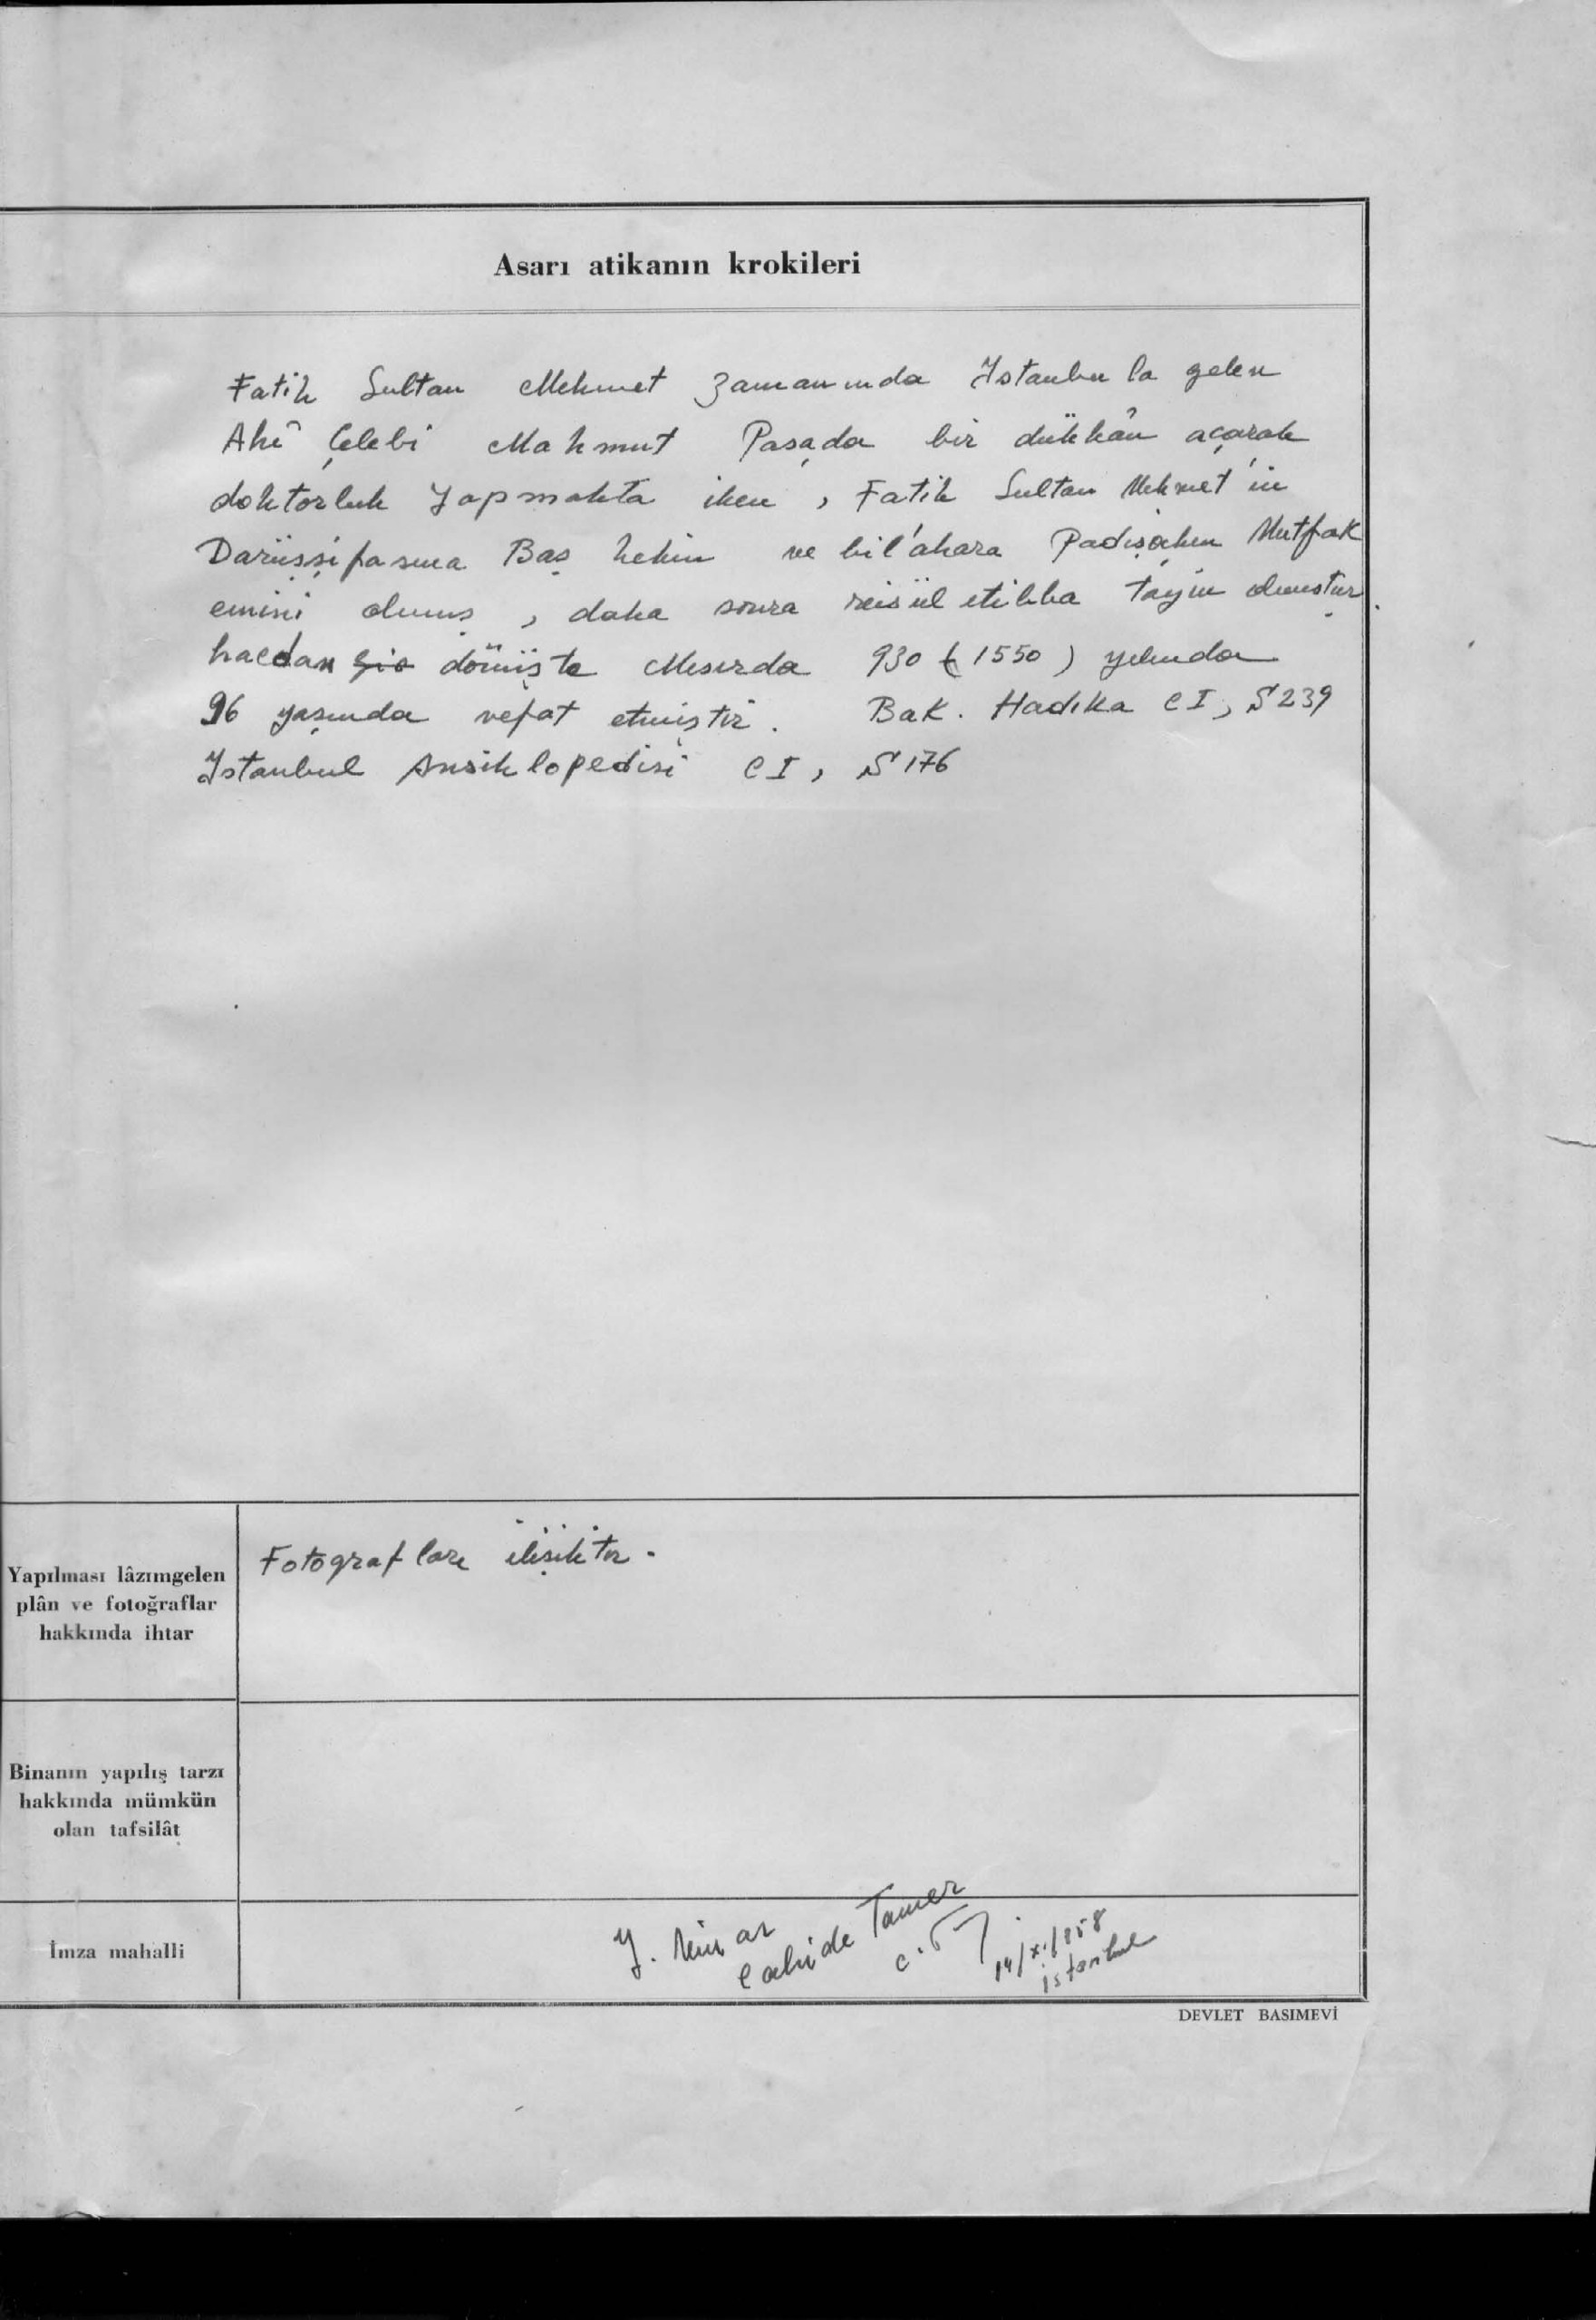 Asarı atikanın krokileri
Fatih Sultan Mehmet zamanında İstanbula gelen
Ahî Çelebi Mahmut Paşada bir dükkân açarak
doktorluk yapmakta iken , Fatih Sultan Mehmet'in
Darüşşifasına Baş hekim ve bil'ahara Padişahın Mutfak
emini olmuş , daha sonra reisül etibba tayin olmuştur.
hacdan dönüşte Mısırda 930 (1550) yılında
96 yaşında vefat etmiştir. Bak. Hadıka C I, S 239
İstanbul Ansiklopedisi C I, S 176
Yapılması lâzımgelen
plân ve fotoğraflar
hakkında ihtar
Fotografları ilişiktir.
Binanın yapılış tarzı
hakkında mümkün
olan tafsilât
İmza mahalli
Y. Mimar
Cahide Tamer
14/XI/958
İstanbul
DEVLET BASIMEVİ